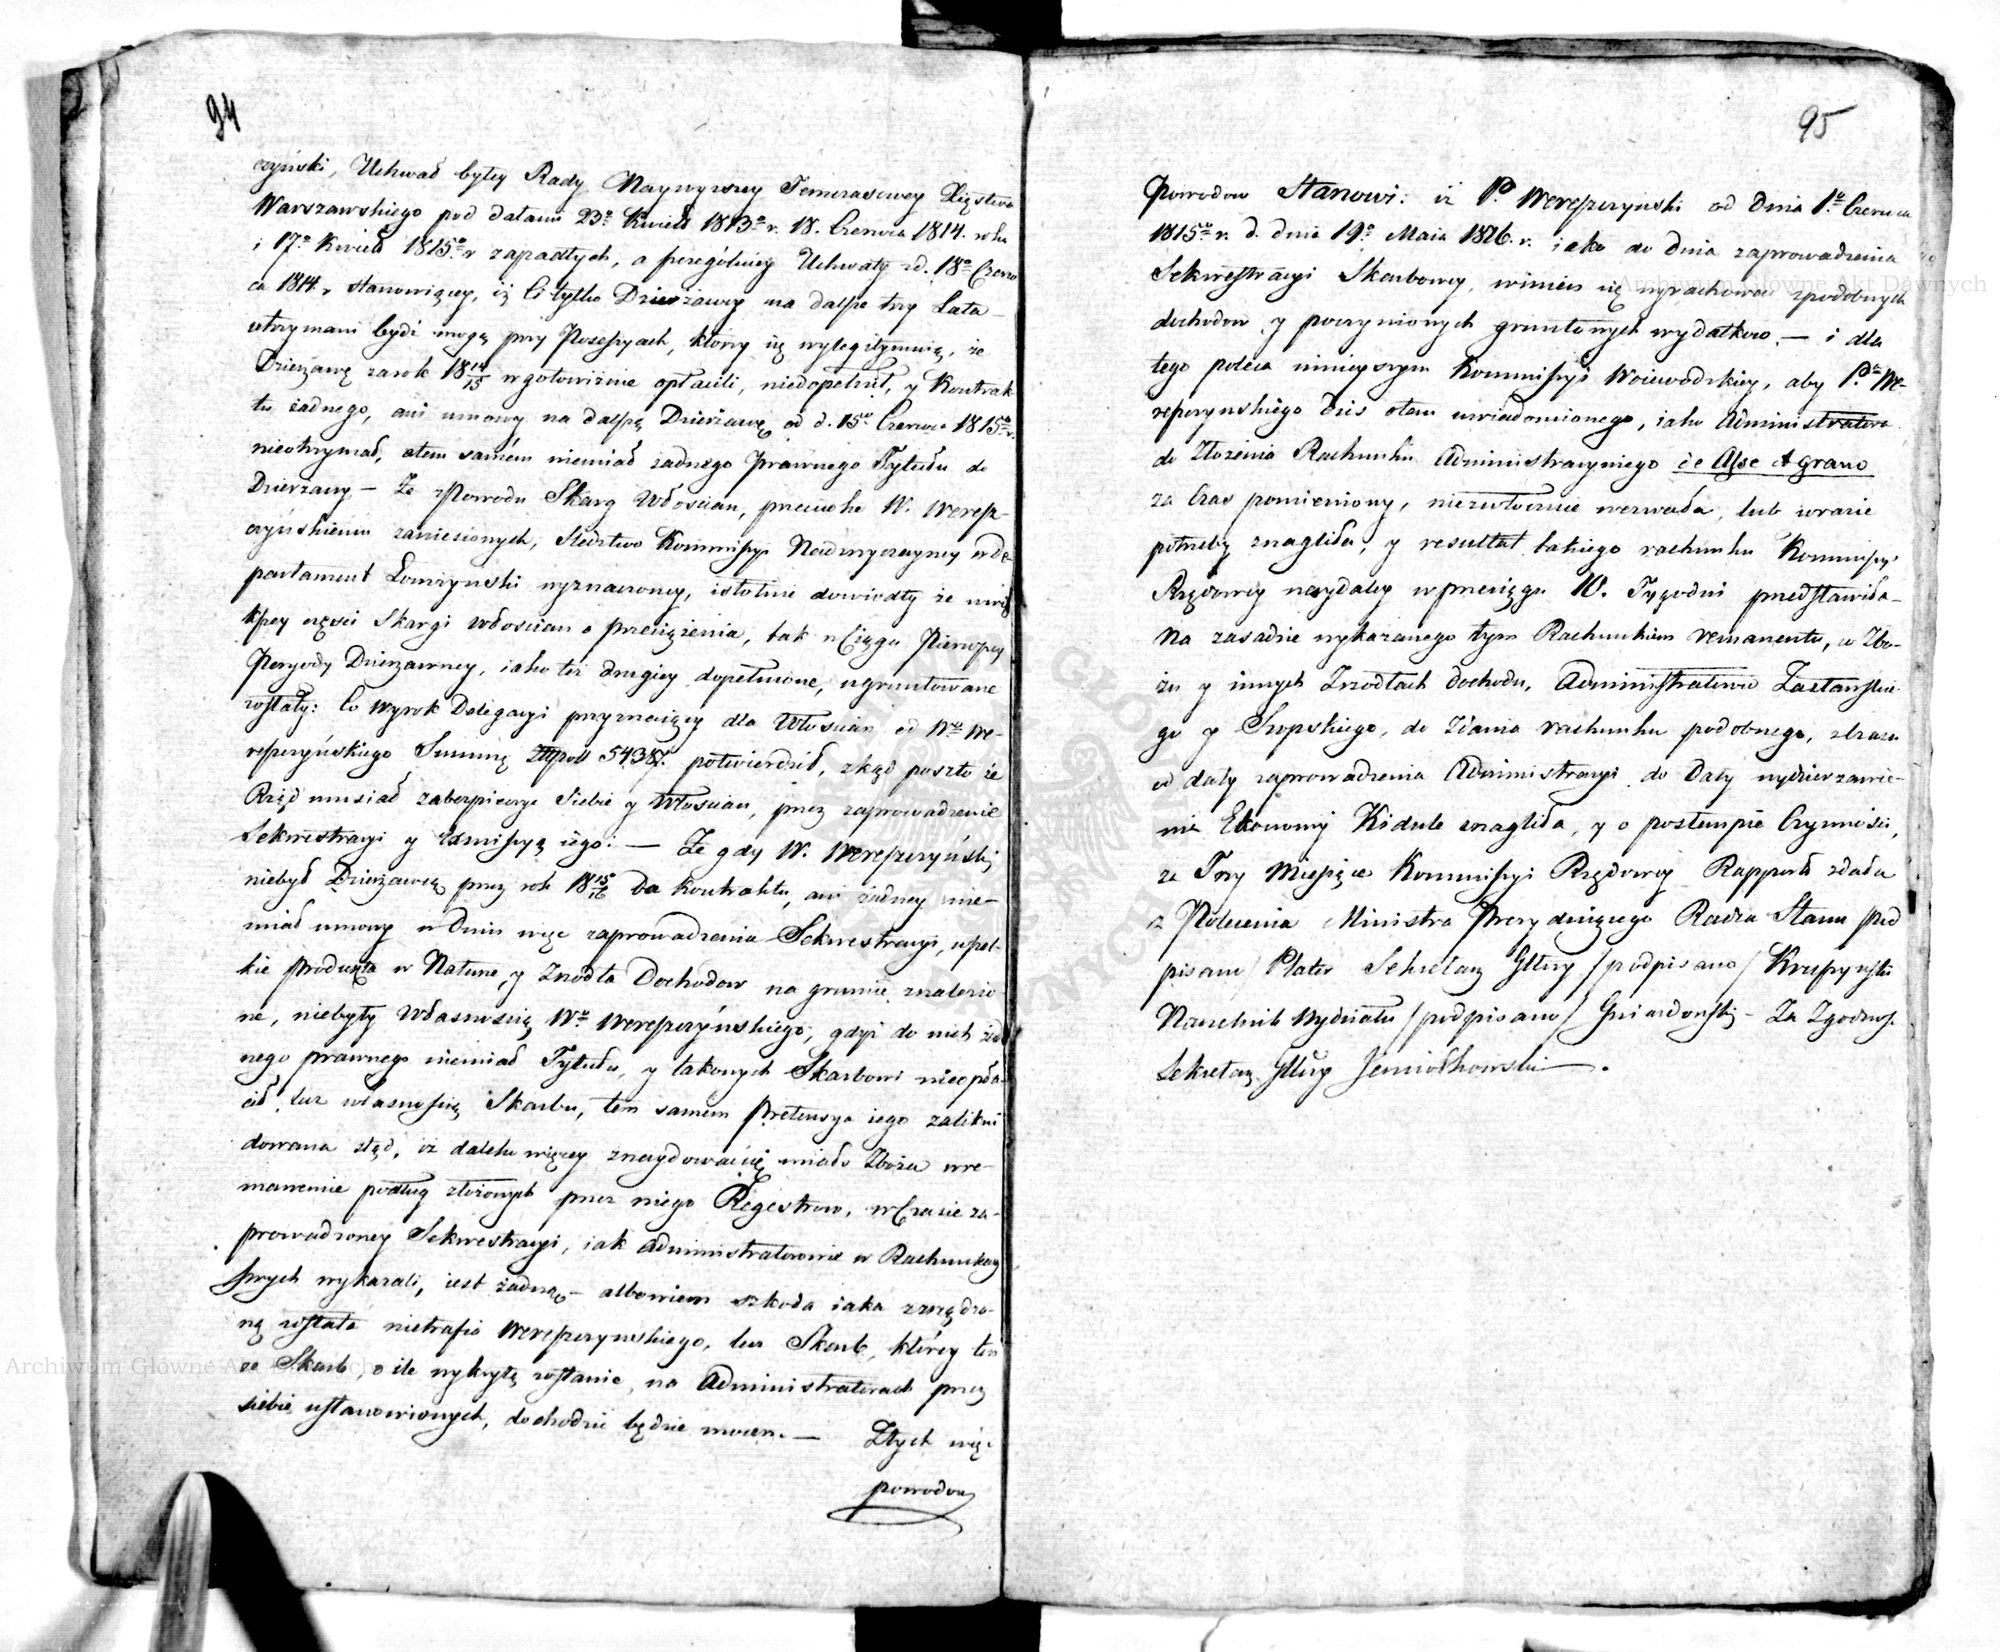 94
czyński, Uchwał byłey Rady Naywyższey Temczasowey Xięstwa
Warszawskiego pod datami 23º Kwiet 1813º r. 18. Czerwca 1814. roku
i 17º Kwiet 1815º r zapadłych, a szczególniey Uchwały z d. 18º Czerw
ca 1814. r stanowiącey, iż Ci tylko Dzierżawcy na dalsze trzy Lata
utrzymani bydź mogą przy Possessyach, którzy się wylegitymuią, że
Dzierżawę za rok 18 14/15 w gotowiźnie opłacili, niedopełnił, y Kontrak
tu żadnego, ani umowy na dalszą Dzierżawę od d. 1º Czerwca 1815º r.
nieotrzymał, a tem samém niemiał żadnego Prawnego Tytułu do
Dzierżawy — Że z Powodu Skarg Włościan, przeciwko W. Weresz-
czyńskiemu zaniesionych, Śledztwo Kommissyi Nadzwyczayney w De
partament Łomżyński wyznaczoney, istotnie dowiodły że w więk
szey części Skargi Włościan o przeciążenia, tak w Ciągu Pierwszey
Peryody Dzierżawney, iako też drugiey dopełnione, ugruntowane
zostały: Co Wyrok Delegacyi przyznaiący dla Włościan od Wgo We-
reszczyńskiego Summę Złtpoll 5438. potwierdził, zkąd poszło że
Rząd musiał zabezpieczyć Siebie y Włościan, przez zaprowadzenie
Sekwestracyi y Exmissyą iego: — Że gdy W. Wereszczyński
niebył Dzierżawcą przez rok 18 15/16 bo kontraktu, ani żadney nie-
miał umowy w Dniu więc zaprowadzenia Sekwestracyi, wszel-
kie produkta w Naturze, y Źrodła Dochodow na gruncie znalezio
ne, niebyły Własnością Wgo Wereszczyńskiego, gdyż do nich żad
nego prawnego niemiał Tytułu, y takowych Skarbowi nieopła-
cił, lecz własnością Skarbu, tem samem Pretensya iego zalikwi
dowana ztąd, iż daleko więcey znaydować się miało Zboża w re-
manencie podług złożonych przez niego Regestrow, w Czasie za-
prowadzoney Sekwestracyi, iak Administratorowie w Rachunkach
swych wykazali, iest żadną — albowiem szkoda iaka zrządzo-
ną została nietrafia Wereszczyńskiego, lecz Skarb, którey ten
że Skarb, o ile wykrytą zostanie, na Administratorach przez
siebie ustanowionych, dochodzić będzie mocen. — Z tych więc
powodow
95
Powodow Stanowi: iż P. Wereszczyński od Dnia 1go Czerwca
1815go r. d. dnia 19º Maia 1816. r. iako do dnia zaprowadzenia
Sekwestracyi Skarbowey, winien się wyrachować z podobnych
dochodow y poczynionych gruntownych wydatkow. — i dla
tego poleca ninieyszym Kommissyi Woiewodzkiey, aby Pna We-
reszczyńskiego dziś o tem uwiadomionego, iako Administratora
do Złożenia Rachunku Administracyinego de Asse et grano
za Czas pomieniony, niezwłocznie wezwała, lub w razie
potrzeby znagliła, y resultat takiego rachunku Kommissyi
Rządowey naydaley w przeciągu 10. Tygodni przedstawiła
Na zasadzie wykazanego tym Rachunkiem remanentu, w Zbo-
żu y innych Zrzodłach dochodu, Administratorow
go y Szopskiego, do Zdania rachunku podobnego, zbrasu
od daty zaprowadzenia Administracyi do Daty wydzierzawie-
nia Ekonomij Kidule znagliła, y o postempie Czynności,
za Trzy Miesiące Kommissyi Rządowey Rapport zdała
z Polecenia Ministra Prezyduiącego Radca Stanu pod
pisano / Plater Sekretarz Glny / podpisano / Kruszyński
Naczelnik Wydziału / podpisano / Gniazdowski — Za Zgodnoś.
Sekretarz Glny Jemiołkowski .